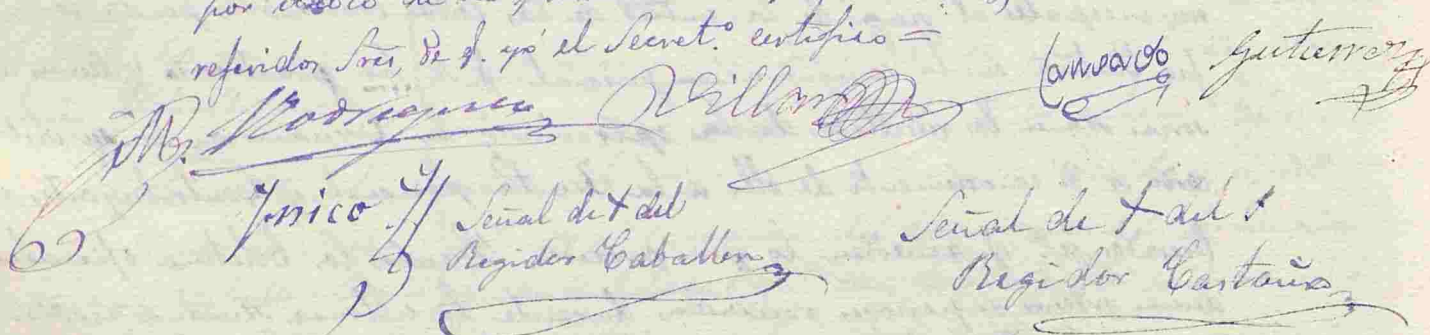 referidos Sres, de q. yo el Secret.º certifico =
M. Rodriguez Villar Cansado Gutierrez
Ynico
Señal de + del
Regidor Caballero
Señal de + del
Regidor Castaño